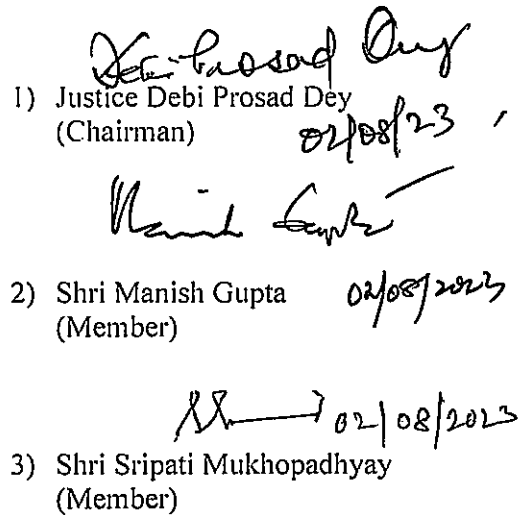 Debi Prosad Dey
1) Justice Debi Prosad Dey
(Chairman)
02/08/23
Manish Gupta
2) Shri Manish Gupta
02/08/2023
(Member)
02/08/2023
3) Shri Sripati Mukhopadhyay
(Member)